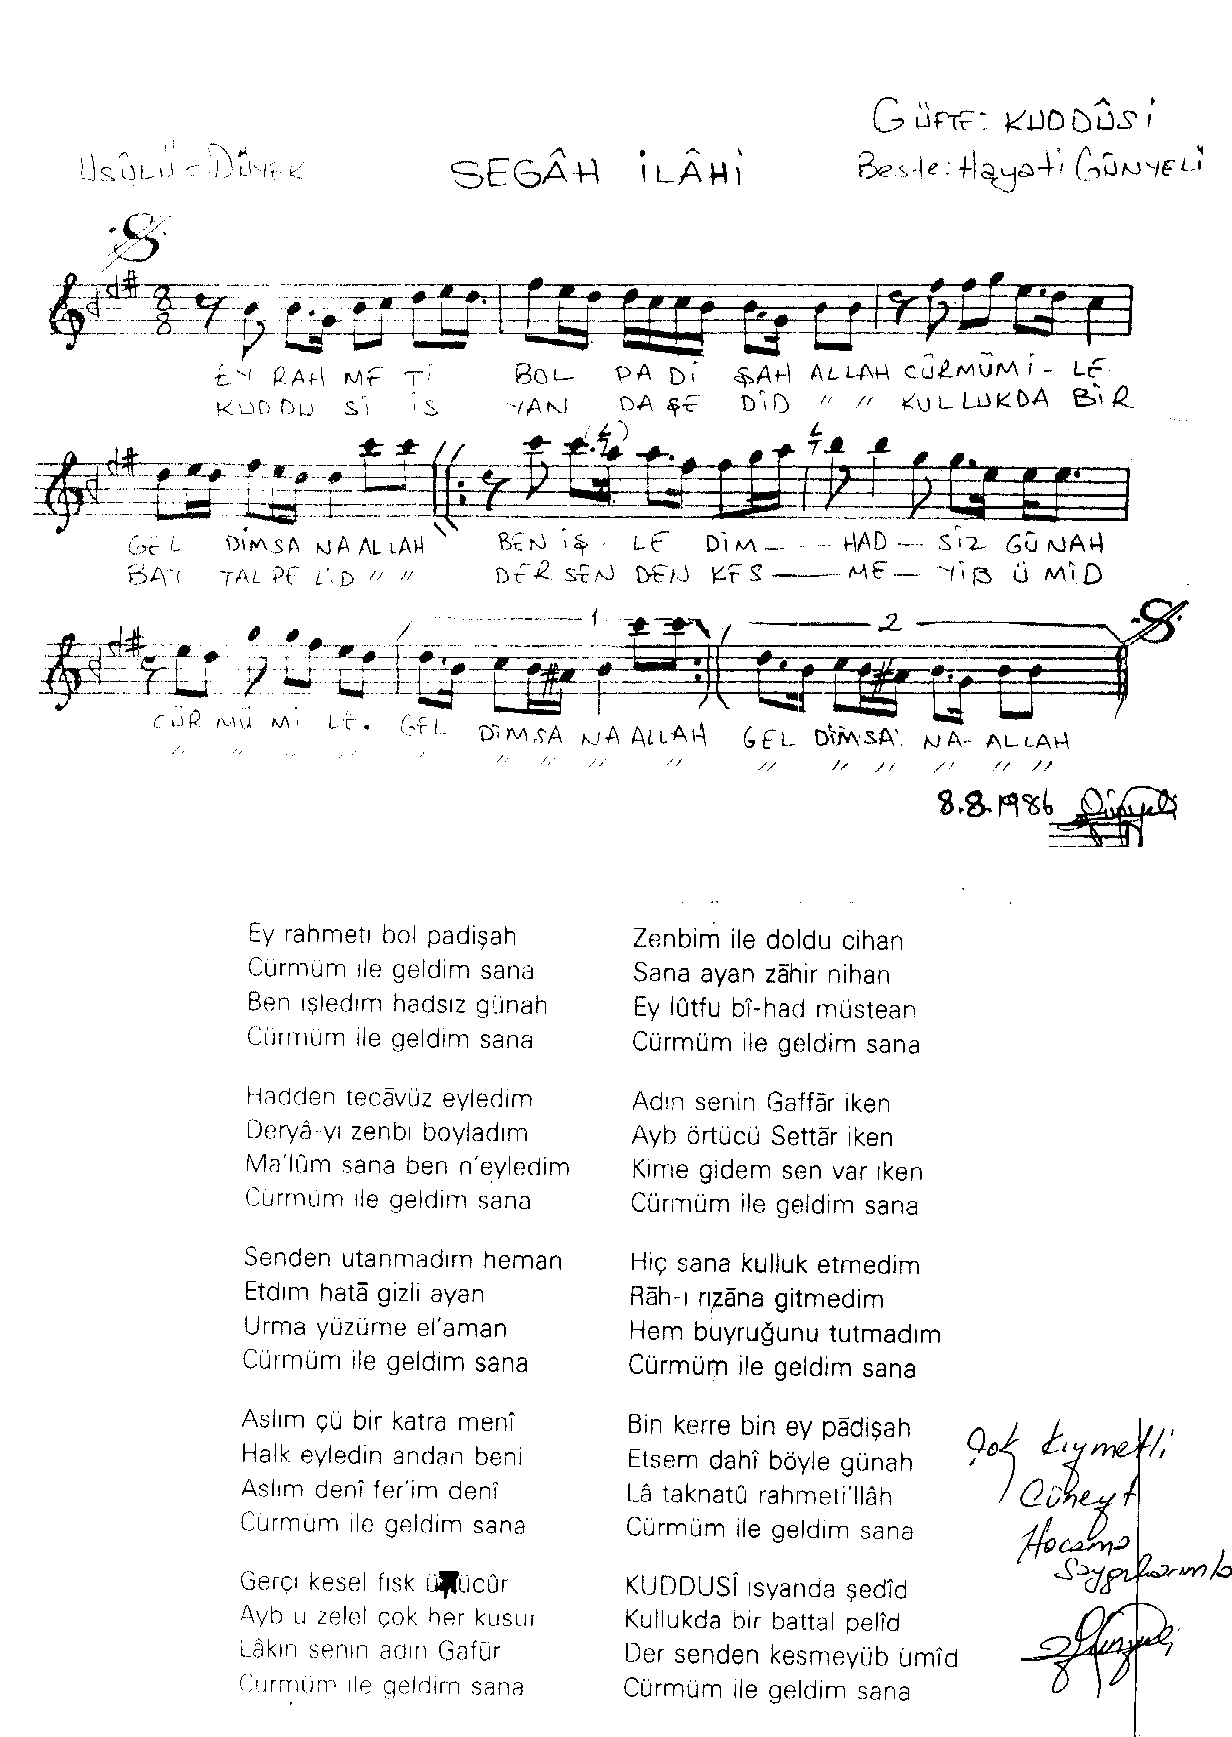 Güfte: KUDDÛSİ
USÛLÜ = DÜYEK
SEGÂH İLÂHİ
Beste: Hayati GÜNYELİ
EY RAH ME Tİ BOL PA Dİ ŞAH ALLAH CÜRMÜM İ - LE
KUDDU Sİ İS YAN DA ŞE DİD " " KULLUKDA BİR
GEL DİMSA NA ALLAH BEN İŞ - LE DİM - - - HAD - SİZ GÜNAH
BAT TAL PE LİD " " DER SEN DEN KES - ME - YİB Ü MİD
1 2
CÜR MÜ Mİ LE. GEL DİMSA NA ALLAH GEL DİMSA NA - ALLAH
" " " " " " " " " " " " " "
8.8.1986
Ey rahmeti bol padişah
Cürmüm ile geldim sana
Ben işledim hadsız günah
Cürmüm ile geldim sana
Hadden tecāvüz eyledim
Deryâ-yı zenbı boyladım
Ma'lûm sana ben n'eyledim
Cürmüm ile geldim sana
Senden utanmadım heman
Etdim hatā gizli ayan
Urma yüzüme el'aman
Cürmüm ile geldim sana
Aslım çü bir katra menî
Halk eyledin andan beni
Aslım denî fer'im denî
Cürmüm ile geldim sana
Gerçi kesel fısk
Ayb u zelel çok her kusur
Lâkin senin adın Gafûr
Cürmüm ile geldim sana
Zenbim ile doldu cihan
Sana ayan zāhir nihan
Ey lûtfu bî-had müstean
Cürmüm ile geldim sana
Adın senin Gaffār iken
Ayb örtücü Settār iken
Kime gidem sen var iken
Cürmüm ile geldim sana
Hiç sana kulluk etmedim
Rāh-ı rızāna gitmedim
Hem buyruğunu tutmadım
Cürmüm ile geldim sana
Bin kerre bin ey pādişah
Etsem dahî böyle günah
Lâ taknatû rahmeti'llâh
Cürmüm ile geldim sana
KUDDUSÎ ısyanda şedîd
Kullukda bir battal pelîd
Der senden kesmeyüb ümîd
Cürmüm ile geldim sana
Çok kıymetli
Cüneyt
Hocama
Saygılarımla